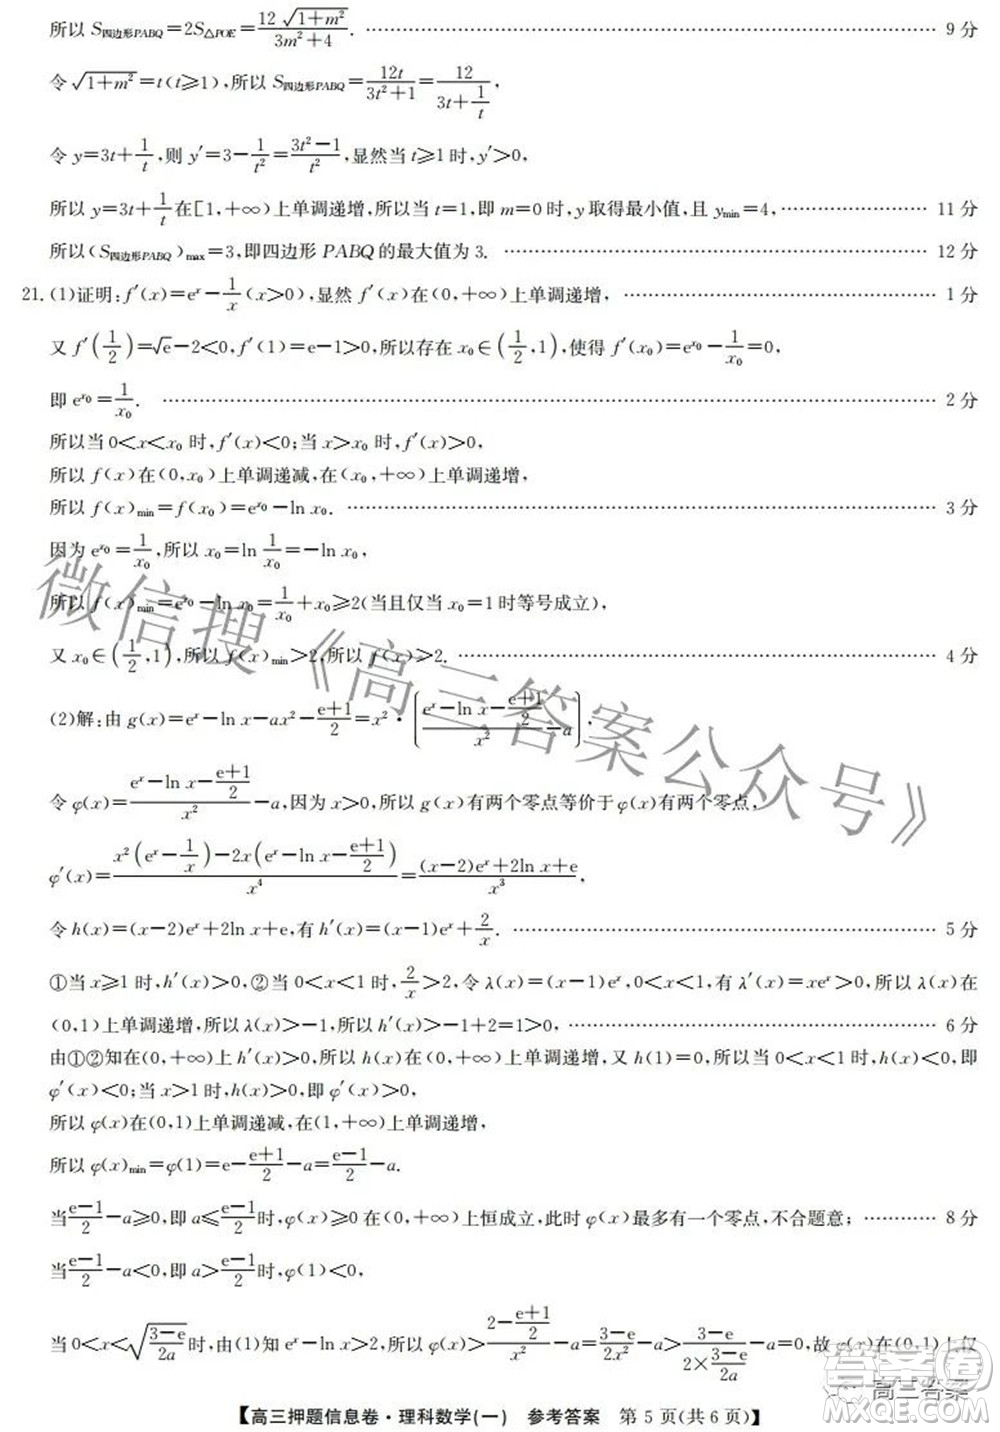 所以 S四边形PABQ=2S△POE=12√(1+m²)/(3m²+4). …… 9 分
令√(1+m²)=t(t≥1),所以 S四边形PABQ=12t/(3t²+1)=12/(3t+1/t),
令 y=3t+1/t,则 y′=3-1/t²=(3t²-1)/t²,显然当 t≥1 时,y′>0,
所以 y=3t+1/t 在[1,+∞)上单调递增,所以当 t=1,即 m=0 时,y 取得最小值,且 ymin=4, …… 11 分
所以(S四边形PABQ)max=3,即四边形 PABQ 的最大值为 3. …… 12 分
21.(1)证明:f′(x)=eˣ-1/x(x>0),显然 f′(x)在(0,+∞)上单调递增, …… 1 分
又 f′(1/2)=√e-2<0,f′(1)=e-1>0,所以存在 x₀∈(1/2,1),使得 f′(x₀)=e^x₀-1/x₀=0,
即 e^x₀=1/x₀. …… 2 分
所以当 0<x<x₀ 时,f′(x)<0;当 x>x₀ 时,f′(x)>0,
所以 f(x)在(0,x₀)上单调递减,在(x₀,+∞)上单调递增,
所以 f(x)min=f(x₀)=e^x₀-ln x₀. …… 3 分
因为 e^x₀=1/x₀,所以 x₀=ln 1/x₀=-ln x₀,
所以 f(x)min=e^x₀-ln x₀=1/x₀+x₀≥2(当且仅当 x₀=1 时等号成立),
又 x₀∈(1/2,1),所以 f(x)min>2,所以 f(x)>2. …… 4 分
(2)解:由 g(x)=eˣ-ln x-ax²-(e+1)/2=x²·[(eˣ-ln x-(e+1)/2)/x²-a],
令 φ(x)=(eˣ-ln x-(e+1)/2)/x²-a,因为 x>0,所以 g(x)有两个零点等价于 φ(x)有两个零点,
φ′(x)=(x²(eˣ-1/x)-2x(eˣ-ln x-(e+1)/2))/x⁴=((x-2)eˣ+2ln x+e)/x³,
令 h(x)=(x-2)eˣ+2ln x+e,有 h′(x)=(x-1)eˣ+2/x. …… 5 分
①当 x≥1 时,h′(x)>0,②当 0<x<1 时,2/x>2,令 λ(x)=(x-1)eˣ,0<x<1,有 λ′(x)=xeˣ>0,所以 λ(x)在
(0,1)上单调递增,所以 λ(x)>-1,所以 h′(x)>-1+2=1>0, …… 6 分
由①②知在(0,+∞)上 h′(x)>0,所以 h(x)在(0,+∞)上单调递增,又 h(1)=0,所以当 0<x<1 时,h(x)<0,即
φ′(x)<0;当 x>1 时,h(x)>0,即 φ′(x)>0,
所以 φ(x)在(0,1)上单调递减,在(1,+∞)上单调递增,
所以 φ(x)min=φ(1)=e-(e+1)/2-a=(e-1)/2-a.
当(e-1)/2-a≥0,即 a≤(e-1)/2 时,φ(x)≥0 在(0,+∞)上恒成立,此时 φ(x)最多有一个零点,不合题意; …… 8 分
当(e-1)/2-a<0,即 a>(e-1)/2 时,φ(1)<0,
当 0<x<√((3-e)/2a)时,由(1)知 eˣ-ln x>2,所以 φ(x)>(2-(e+1)/2)/x²-a=(3-e)/2x²-a>(3-e)/(2×(3-e)/2a)-a=0,故 φ(x)在(0,1)上仅
【高三押题信息卷·理科数学(一) 参考答案 第 5 页(共 6 页)】
微信搜《高三答案公众号》
高三答案
答案圈